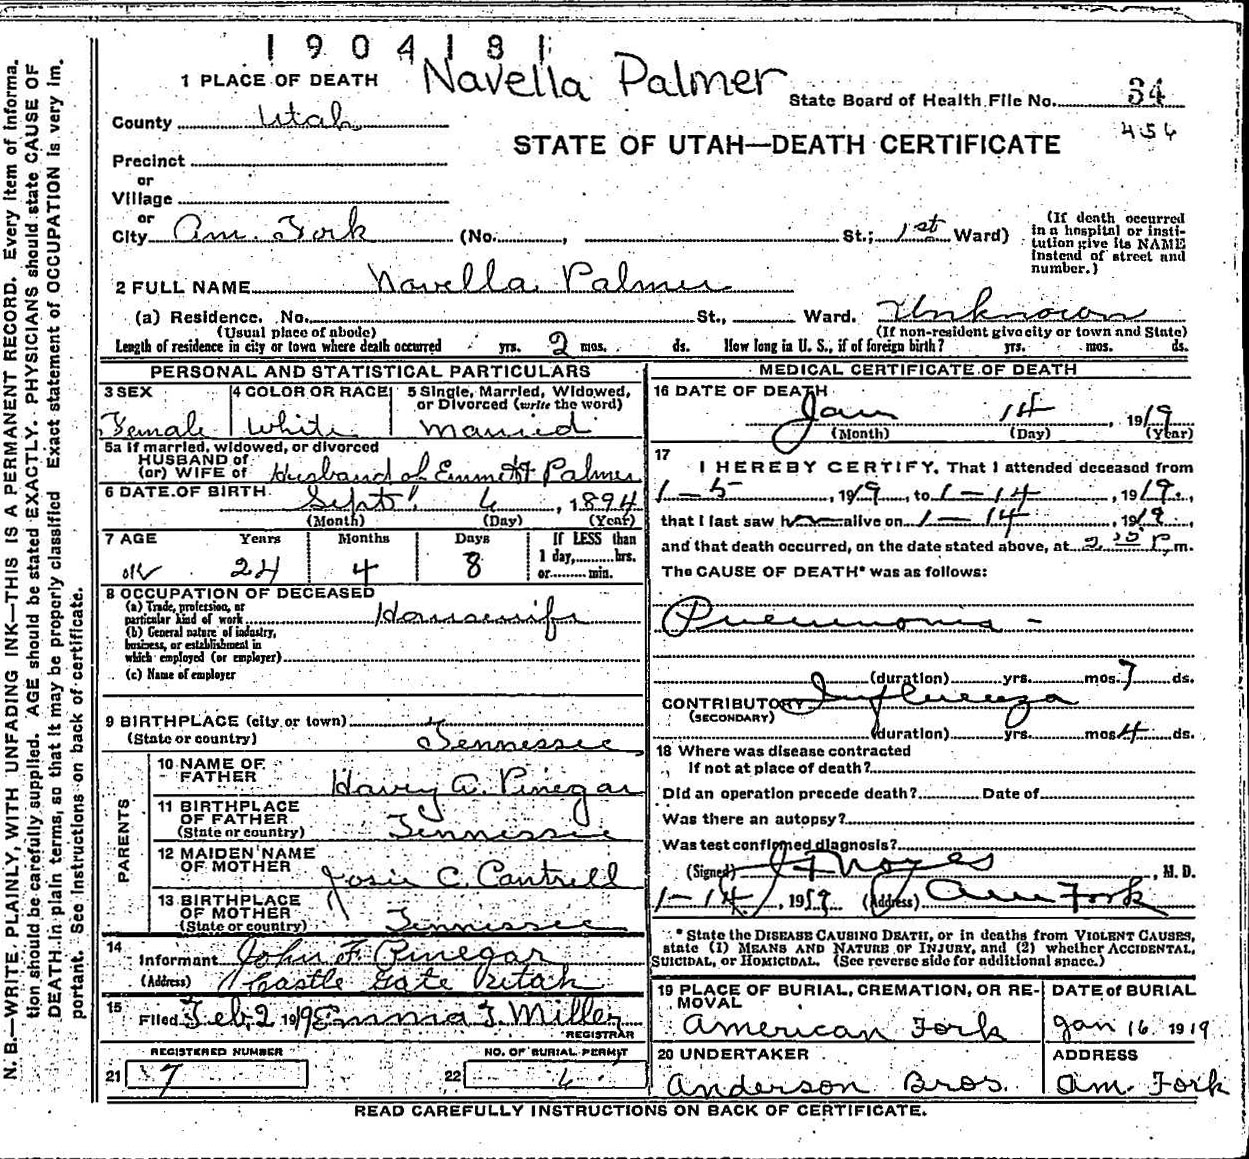 1904181
Navella Palmer
1 PLACE OF DEATH
State Board of Health File No. 34
County Utah
456
STATE OF UTAH—DEATH CERTIFICATE
Precinct
or
Village
or
City Am. Fork (No. , St.; 1st Ward)
(If death occurred in a hospital or institution give its NAME instead of street and number.)
2 FULL NAME Navella Palmer
(a) Residence. No. St., Ward. Unknown
(Usual place of abode) (If non-resident give city or town and State)
Length of residence in city or town where death occurred yrs. 2 mos. ds. How long in U. S., if of foreign birth? yrs. mos. ds.
PERSONAL AND STATISTICAL PARTICULARS
3 SEX 4 COLOR OR RACE 5 Single, Married, Widowed, or Divorced (write the word)
Female White Married
5a If married, widowed, or divorced
HUSBAND of
(or) WIFE of Husband of Emmett Palmer
6 DATE OF BIRTH Sept. 6, 1894
(Month) (Day) (Year)
7 AGE Years Months Days If LESS than
1 day, hrs.
or min.
OK 24 4 8
8 OCCUPATION OF DECEASED
(a) Trade, profession, or
particular kind of work Housewife
(b) General nature of industry,
business, or establishment in
which employed (or employer)
(c) Name of employer
9 BIRTHPLACE (city or town)
(State or country) Tennessee
PARENTS
10 NAME OF
FATHER Harvy A. Pinegar
11 BIRTHPLACE
OF FATHER
(State or country) Tennessee
12 MAIDEN NAME
OF MOTHER Josie C. Cantrell
13 BIRTHPLACE
OF MOTHER
(State or country) Tennessee
14
Informant John F. Pinegar
(Address) Castle Gate Utah
15
Filed Feb, 2 1919 Emma J. Miller
REGISTRAR
REGISTERED NUMBER NO. OF BURIAL PERMIT
21 7 22 6
MEDICAL CERTIFICATE OF DEATH
16 DATE OF DEATH
Jan 14, 1919
(Month) (Day) (Year)
17
I HEREBY CERTIFY, That I attended deceased from
1-5, 1919, to 1-14, 1919,
that I last saw her alive on 1-14, 1919,
and that death occurred, on the date stated above, at 2 P. m.
The CAUSE OF DEATH* was as follows:
Pneumonia -
(duration) yrs. mos. 7 ds.
CONTRIBUTORY Influenza
(SECONDARY)
(duration) yrs. mos. 4 ds.
18 Where was disease contracted
If not at place of death?
Did an operation precede death? Date of
Was there an autopsy?
Was test confirmed diagnosis?
(Signed) Noyes, M. D.
1-14, 1919 (Address) Am Fork
* State the DISEASE CAUSING DEATH, or in deaths from VIOLENT CAUSES,
state (1) MEANS AND NATURE OF INJURY, and (2) whether ACCIDENTAL,
SUICIDAL, or HOMICIDAL. (See reverse side for additional space.)
19 PLACE OF BURIAL, CREMATION, OR REMOVAL DATE of BURIAL
American Fork Jan 16, 1919
20 UNDERTAKER ADDRESS
Anderson Bros. Am. Fork
READ CAREFULLY INSTRUCTIONS ON BACK OF CERTIFICATE.
N. B.—WRITE PLAINLY, WITH UNFADING INK—THIS IS A PERMANENT RECORD. Every item of informa-
tion should be carefully supplied. AGE should be stated EXACTLY. PHYSICIANS should state CAUSE OF
DEATH in plain terms, so that it may be properly classified. Exact statement of OCCUPATION is very im-
portant. See instructions on back of certificate.